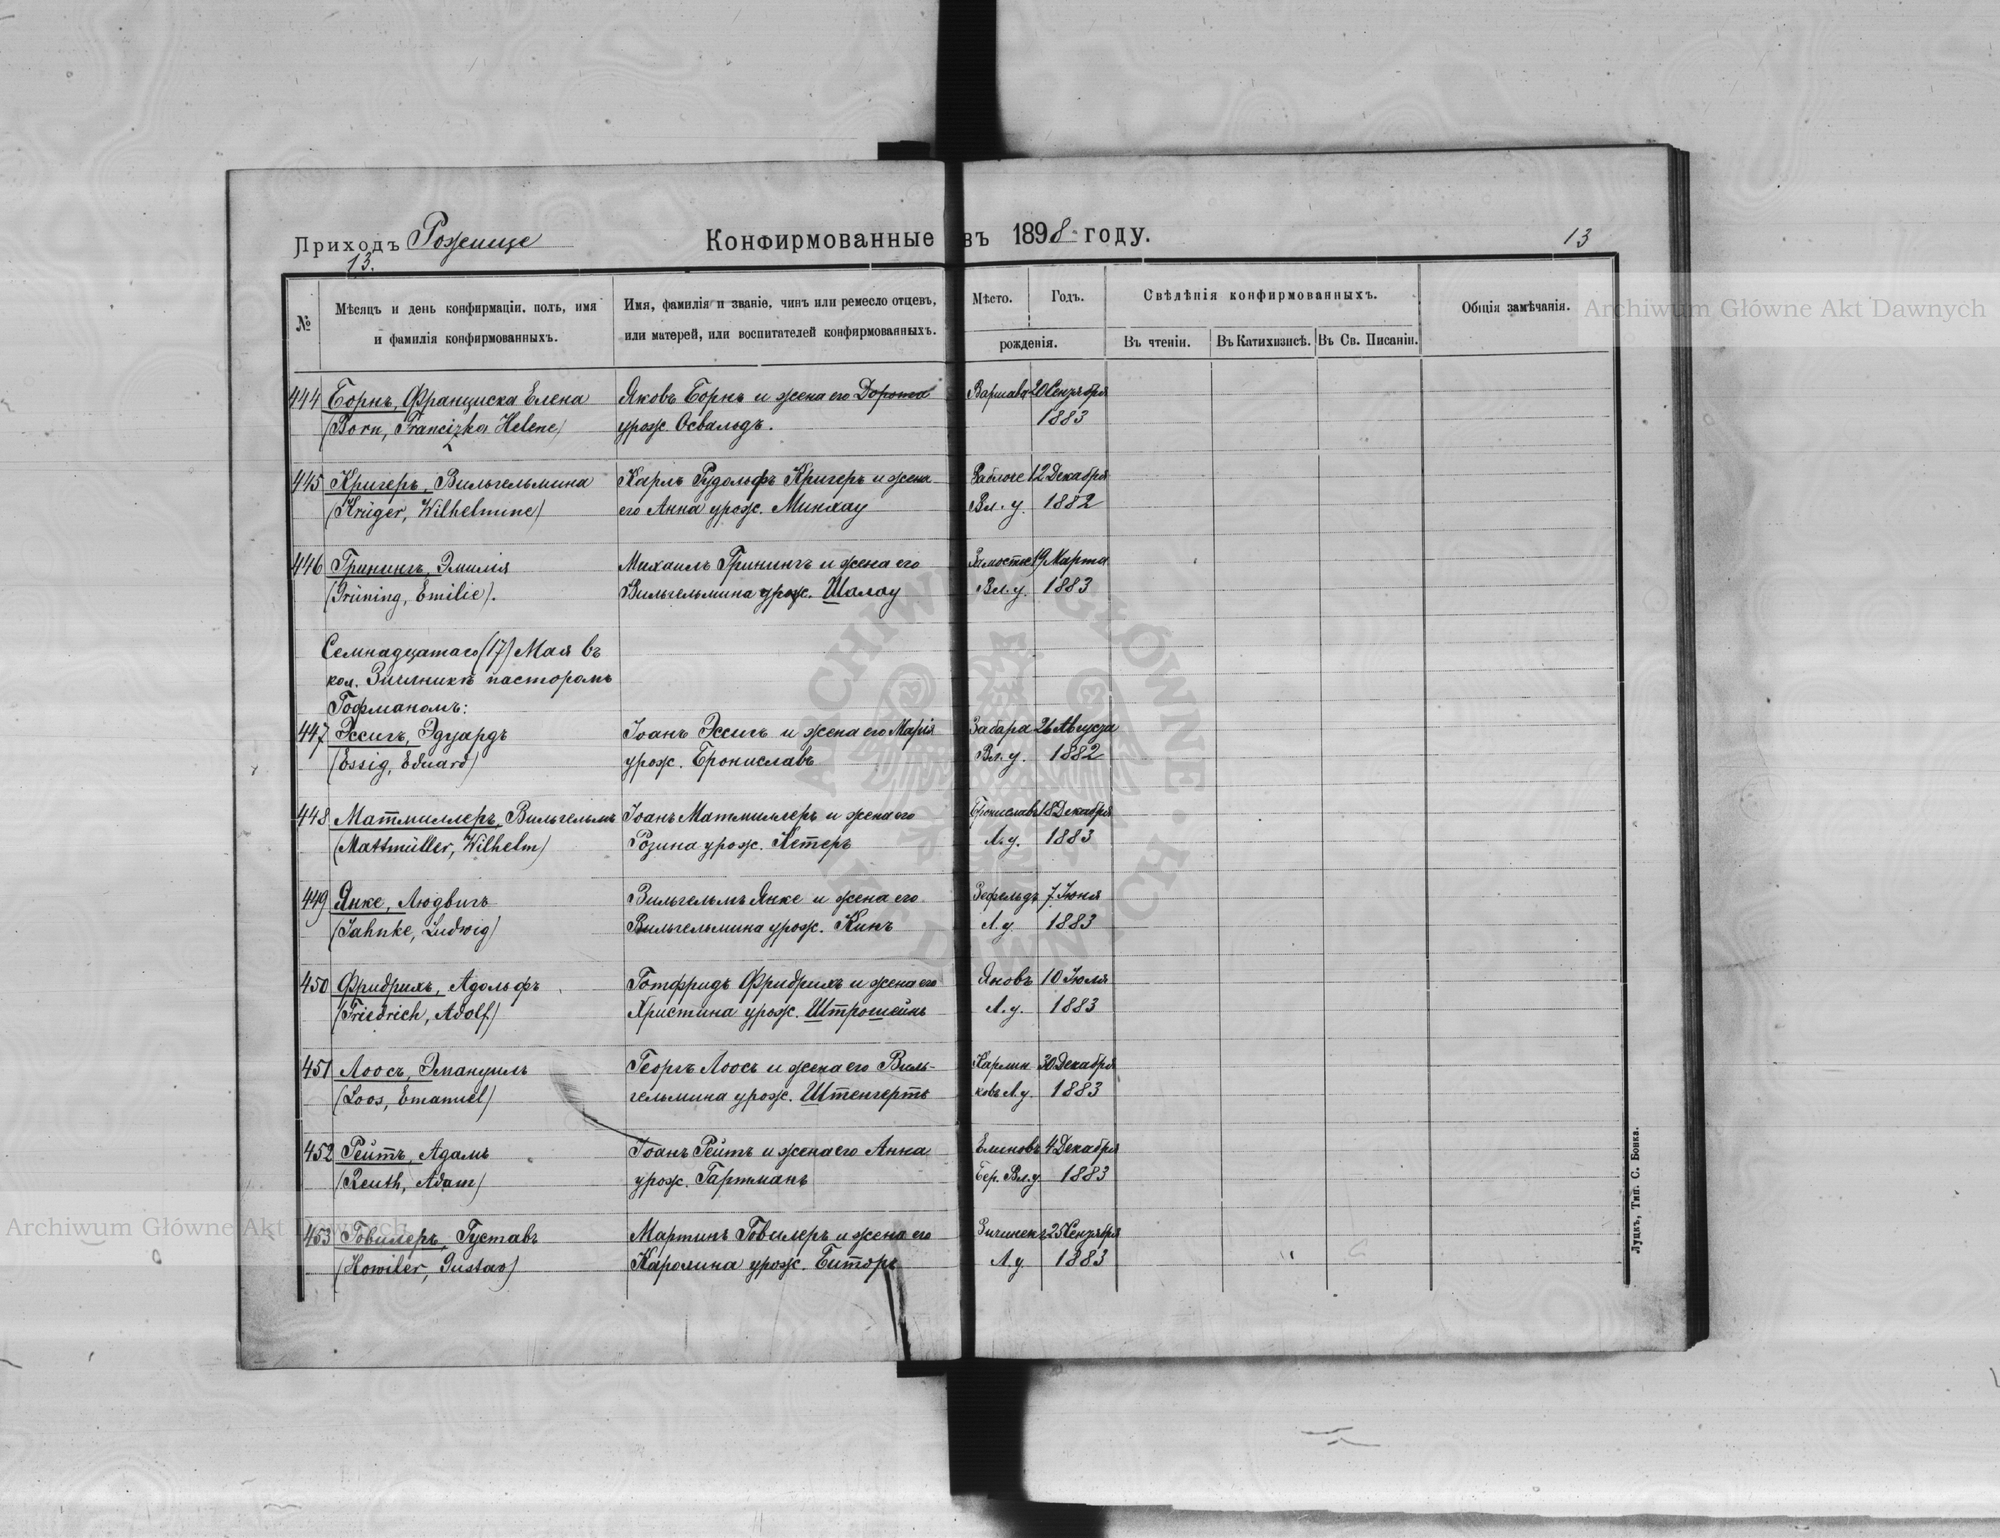 Приходъ Рожище
Конфирмованные въ 1898 году.
13
13.
№
Мѣсяцъ и день конфирмаціи, полъ, имя
и фамилія конфирмованныхъ.
Имя, фамилія и званіе, чинъ или ремесло отцевъ,
или матерей, или воспитателей конфирмованныхъ.
Мѣсто. Годъ.
рожденія.
Свѣдѣнія конфирмованныхъ.
Въ чтеніи. Въ Катихизисѣ. Въ Св. Писаніи.
Общія замѣчанія.
Archiwum Główne Akt Dawnych
444 Борнъ, Франциска Елена Яковъ Борнъ и жена его Дорота Варшава 20 Сентября
(Born, Francizka Helene) урож. Освальдъ. 1883
445 Кригеръ, Вильгельмина Карлъ Рудольфъ Кригеръ и жена 12 Декабря
(Krüger, Wilhelmine) его Анна урож. Минхау Вл. у. 1882
446 Гринингъ, Эмилія Михаилъ Гринингъ и жена его 19 Марта
(Grüning, Emilie). Вильгельмина урож. Шалау Вл. у. 1883
Семнадцатаго (17) Мая въ
кол. пасторомъ
Гофманомъ:
447 Эссигъ, Эдуардъ Іоанъ Эссигъ и жена его Марія Забара 26 Августа
(Essig, Eduard) урож. Брониславъ Вл. у. 1882
448 Матмиллеръ, Вильгельмъ Іоанъ Матмиллеръ и жена его Брониславъ 18 Декабря
(Mattmüller, Wilhelm) Розина урож. Кетеръ Л. у. 1883
449 Янке, Людвигъ Вильгельмъ Янке и жена его Зефельдъ 7 Іюня
(Jahnke, Ludwig) Вильгельмина урож. Кинъ Л. у. 1883
450 Фридрихъ, Адольфъ Готфридъ Фридрихъ и жена его Яновъ 10 Іюля
(Friedrich, Adolf) Христина урож. Штрошейнъ Л. у. 1883
451 Лоосъ, Эмануилъ Георгъ Лоосъ и жена его Виль- Карлин 30 Декабря
(Loos, Emanuel) гельмина урож. Штенгертъ ковъ Л. у. 1883
452 Рейтъ, Адамъ Іоанъ Рейтъ и жена его Анна 4 Декабря
(Reuth, Adam) урож. Гартманъ Бер. Вл. у. 1883
453 Говилеръ, Густавъ Мартинъ Говилеръ и жена его 25 Сентября
(Howiler, Gustav) Каролина урож. Л. у. 1883
Луцкъ, Тип. С. Бонка.
Archiwum Główne Akt Dawnych
ARCHIWUM GŁÓWNE AKT DAWNYCH